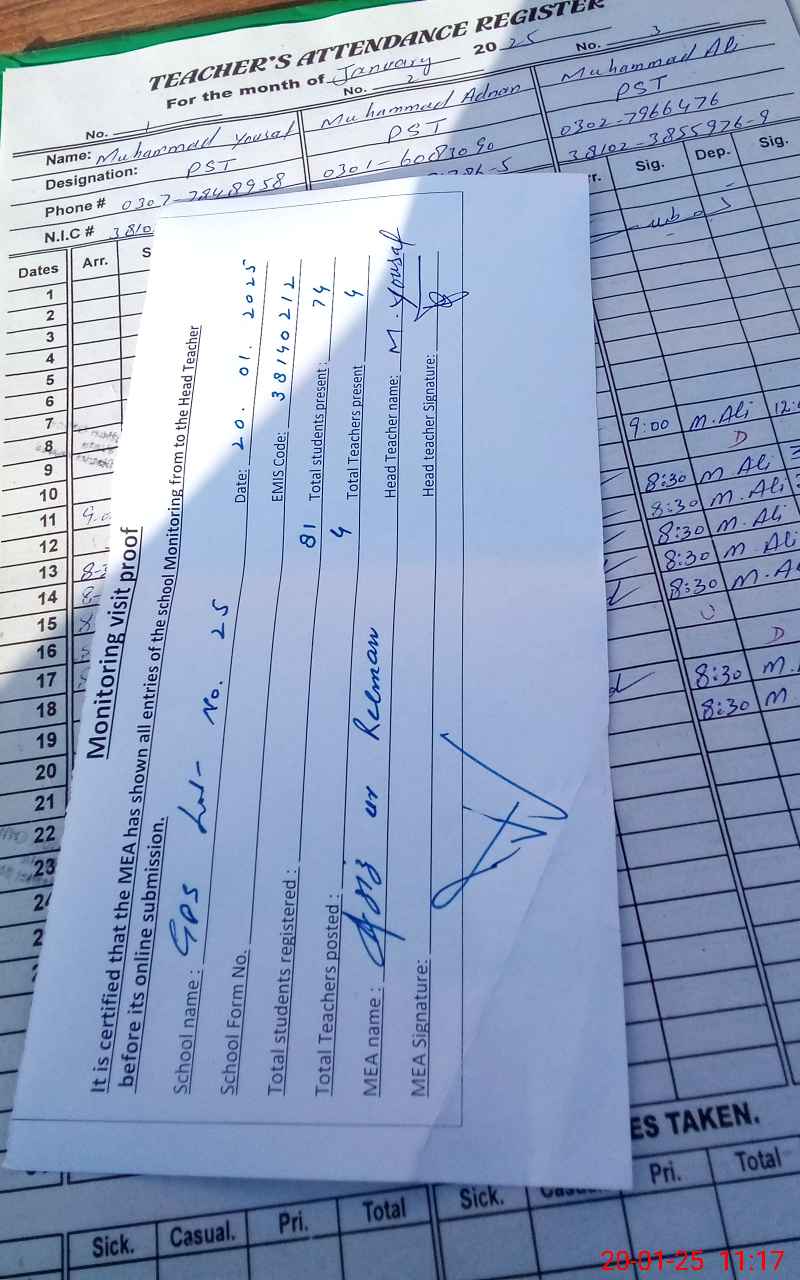 TEACHER'S ATTENDANCE REGISTER
For the month of January 2025
No. 1 No. 2 No. 3
Name: Muhammad Yousaf Muhammad Adnan Muhammad Ali
Designation: PST PST PST
Phone # 0307-7848958 0301-6083090 0302-7966476
N.I.C # 3810 786-5 38102-3855976-9
Dates Arr. S rr. Sig. Dep. Sig.
1
2
3
4
5
6
7 9:00 M. Ali 12:
8 D
9 8:30 M. Ali
10 8:30 M. Ali
11 8:30 M. Ali
12 8:30 M. Ali
13 8:30 M. A
14
15 D
16 8:30 M.
17 8:30 M.
18
19
20
21
22
23
2
2
Monitoring visit proof
It is certified that the MEA has shown all entries of the school Monitoring from to the Head Teacher
before its online submission.
School name: GPS No. 25
School Form No. Date: 20.01.2025
EMIS Code: 38140212
Total students registered: 81 Total students present: 74
Total Teachers posted: 4 Total Teachers present 4
MEA name: ur Rehman Head Teacher name: M. Yousaf
MEA Signature: Head teacher Signature:
ES TAKEN.
Sick. Casual. Pri. Total Sick. Pri. Total
20-01-25 11:17